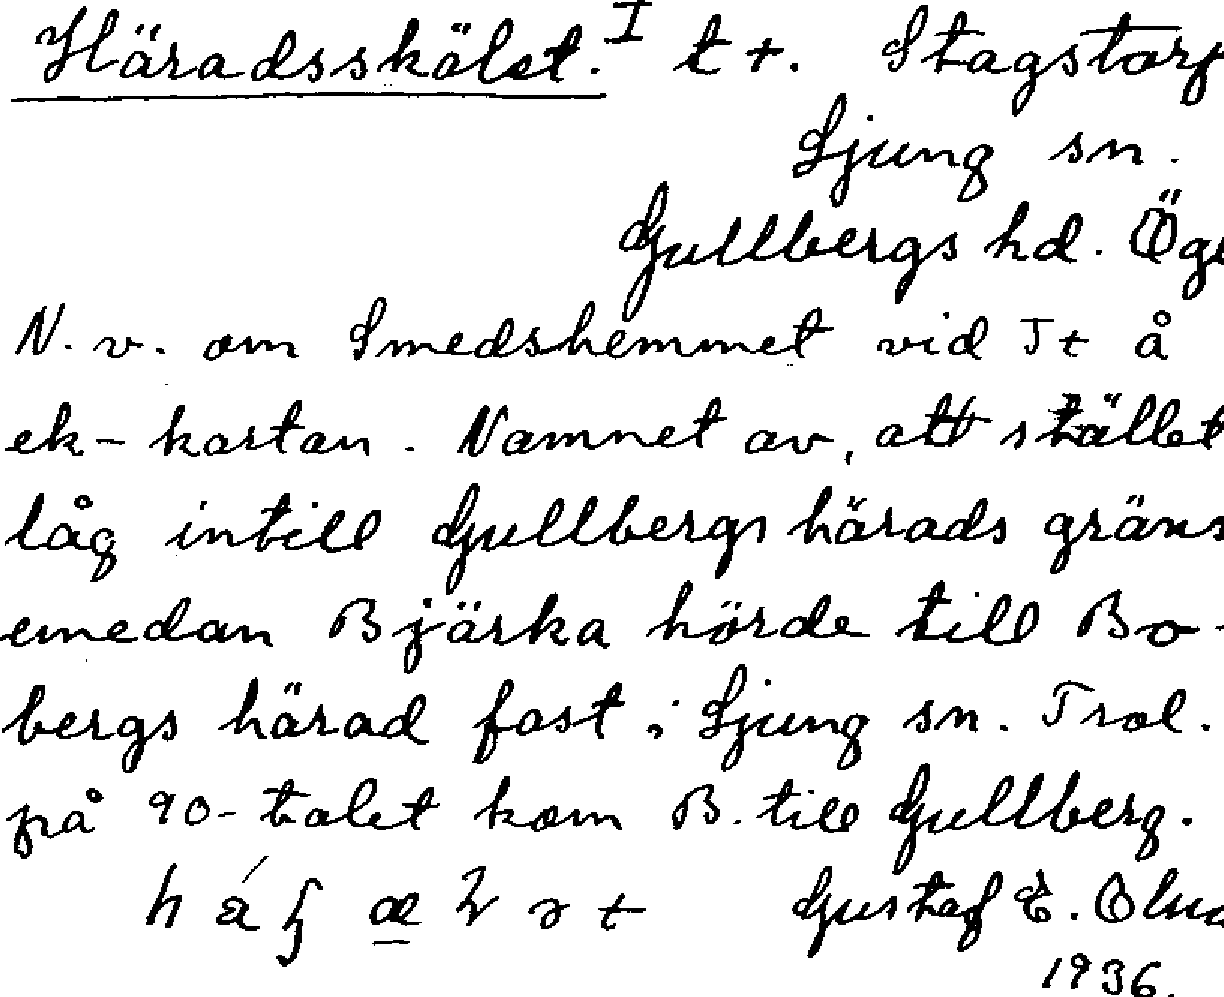 Häradsskälet. I t t. Stagstorp
Ljung sn.
Gullbergs hd. Ög
N. v. om Smedshemmet vid Tt å
ek-kartan. Namnet av, att stället
låg intill Gullbergs härads gräns
emedan Bjärka hörde till Bo-
bergs härad fast i Ljung sn. Trol.
på 90-talet kom B. till Gullberg.
Gustaf E.
1936.